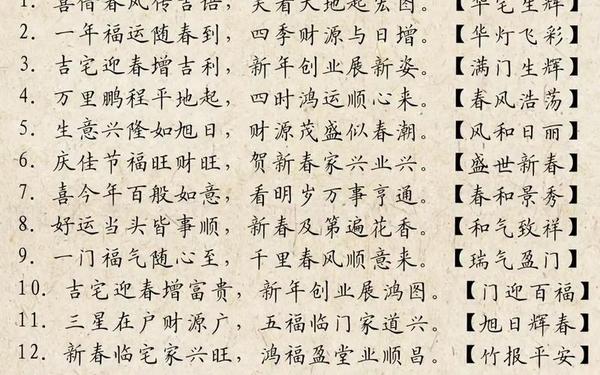 1. 喜借春风传吉语，笑看天地起宏图。【华宅生辉】
2. 一年福运随春到，四季财源与日增。【华灯飞彩】
3. 吉宅迎春增吉利，新年创业展新姿。【满门生辉】
4. 万里鹏程平地起，四时鸿运顺心来。【春风浩荡】
5. 生意兴隆如旭日，财源茂盛似春潮。【风和日丽】
6. 庆佳节福旺财旺，贺新春家兴业兴。【盛世新春】
7. 喜今年百般如意，看明岁万事亨通。【春和景秀】
8. 好运当头皆事顺，新春及第遍花香。【和气致祥】
9. 一门福气随心至，千里春风顺意来。【瑞气盈门】
10. 吉宅迎春增富贵，新年创业展鸿图。【门迎百福】
11. 三星在户财源广，五福临门家道兴。【旭日辉春】
12. 新春临宅家兴旺，鸿福盈堂业顺昌。【竹报平安】